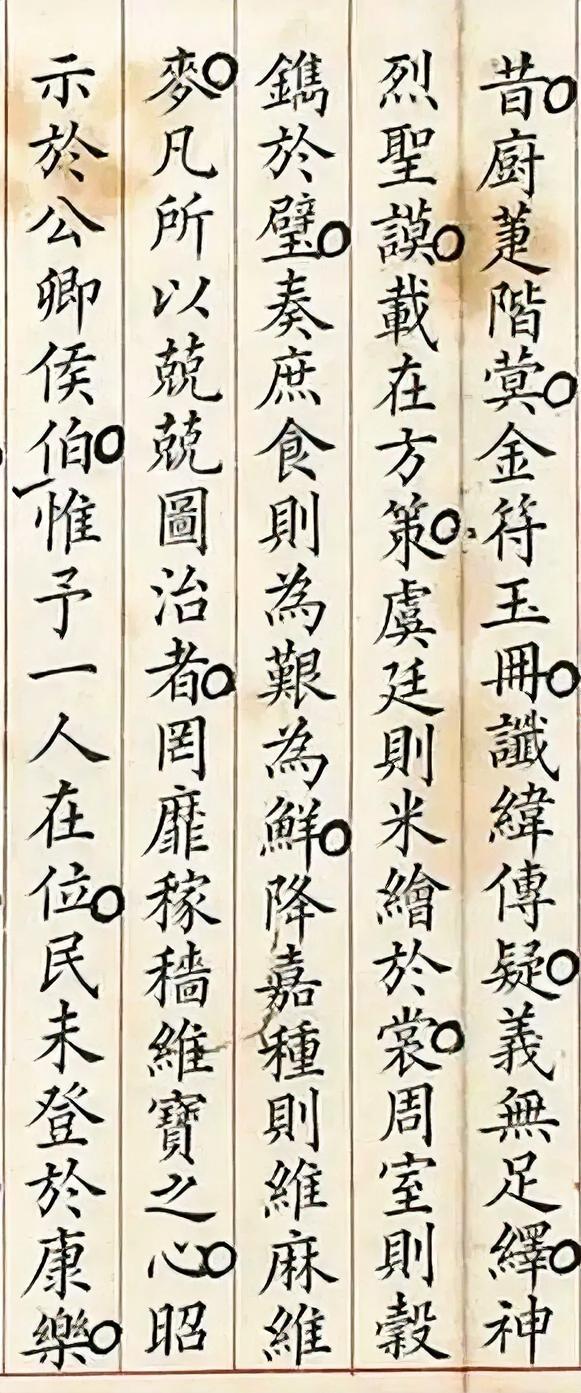 昔廚萐階蓂金符玉冊讖緯傳疑義無足繹神
烈聖謨載在方策虞廷則米繪於裳周室則穀
鐫於璧奏庶食則為艱為鮮降嘉種則維麻維
麥凡所以兢兢圖治者罔靡稼穡維寶之心昭
示於公卿侯伯惟予一人在位民未登於康樂